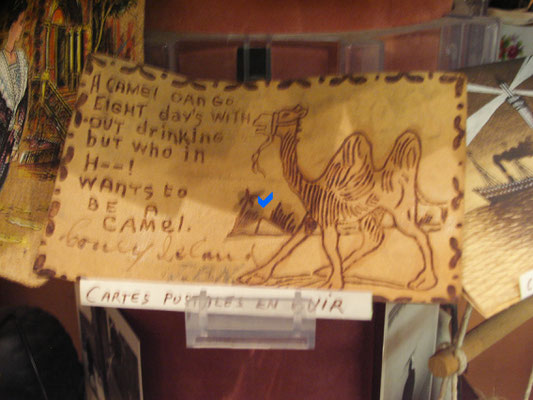 A CAMEL CAN GO
EIGHT day's WITH
OUT drinking
but who in
H--!
WANTS to
BE A
CAMEL.
Coney Island
CARTES POSTALES EN CUIR